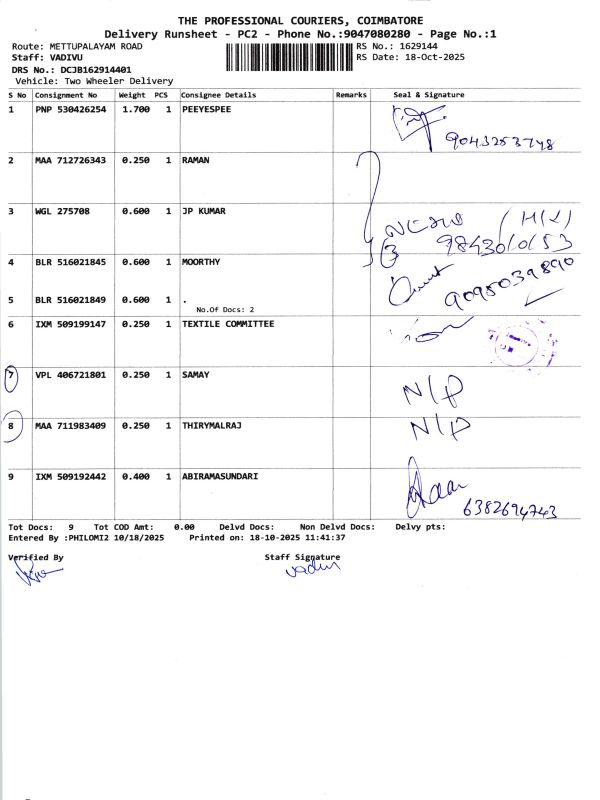 THE PROFESSIONAL COURIERS, COIMBATORE
Delivery Runsheet - PC2 - Phone No.:9047080280 - Page No.:1
Route: METTUPALAYAM ROAD RS No.: 1629144
Staff: VADIVU RS Date: 18-Oct-2025
DRS No.: DCJB162914401
Vehicle: Two Wheeler Delivery
S No Consignment No Weight PCS Consignee Details Remarks Seal & Signature
1 PNP 530426254 1.700 1 PEEYESPEE
9043253748
2 MAA 712726343 0.250 1 RAMAN
3 WGL 275708 0.600 1 JP KUMAR
9843010153
4 BLR 516021845 0.600 1 MOORTHY
9095039890
5 BLR 516021849 0.600 1 .
No.Of Docs: 2
6 IXM 509199147 0.250 1 TEXTILE COMMITTEE
7 VPL 406721801 0.250 1 SAMAY N/P
8 MAA 711983409 0.250 1 THIRYMALRAJ N/P
9 IXM 509192442 0.400 1 ABIRAMASUNDARI
6382694743
Tot Docs: 9 Tot COD Amt: 0.00 Delvd Docs: Non Delvd Docs: Delvy pts:
Entered By :PHILOMI2 10/18/2025 Printed on: 18-10-2025 11:41:37
Verified By Staff Signature